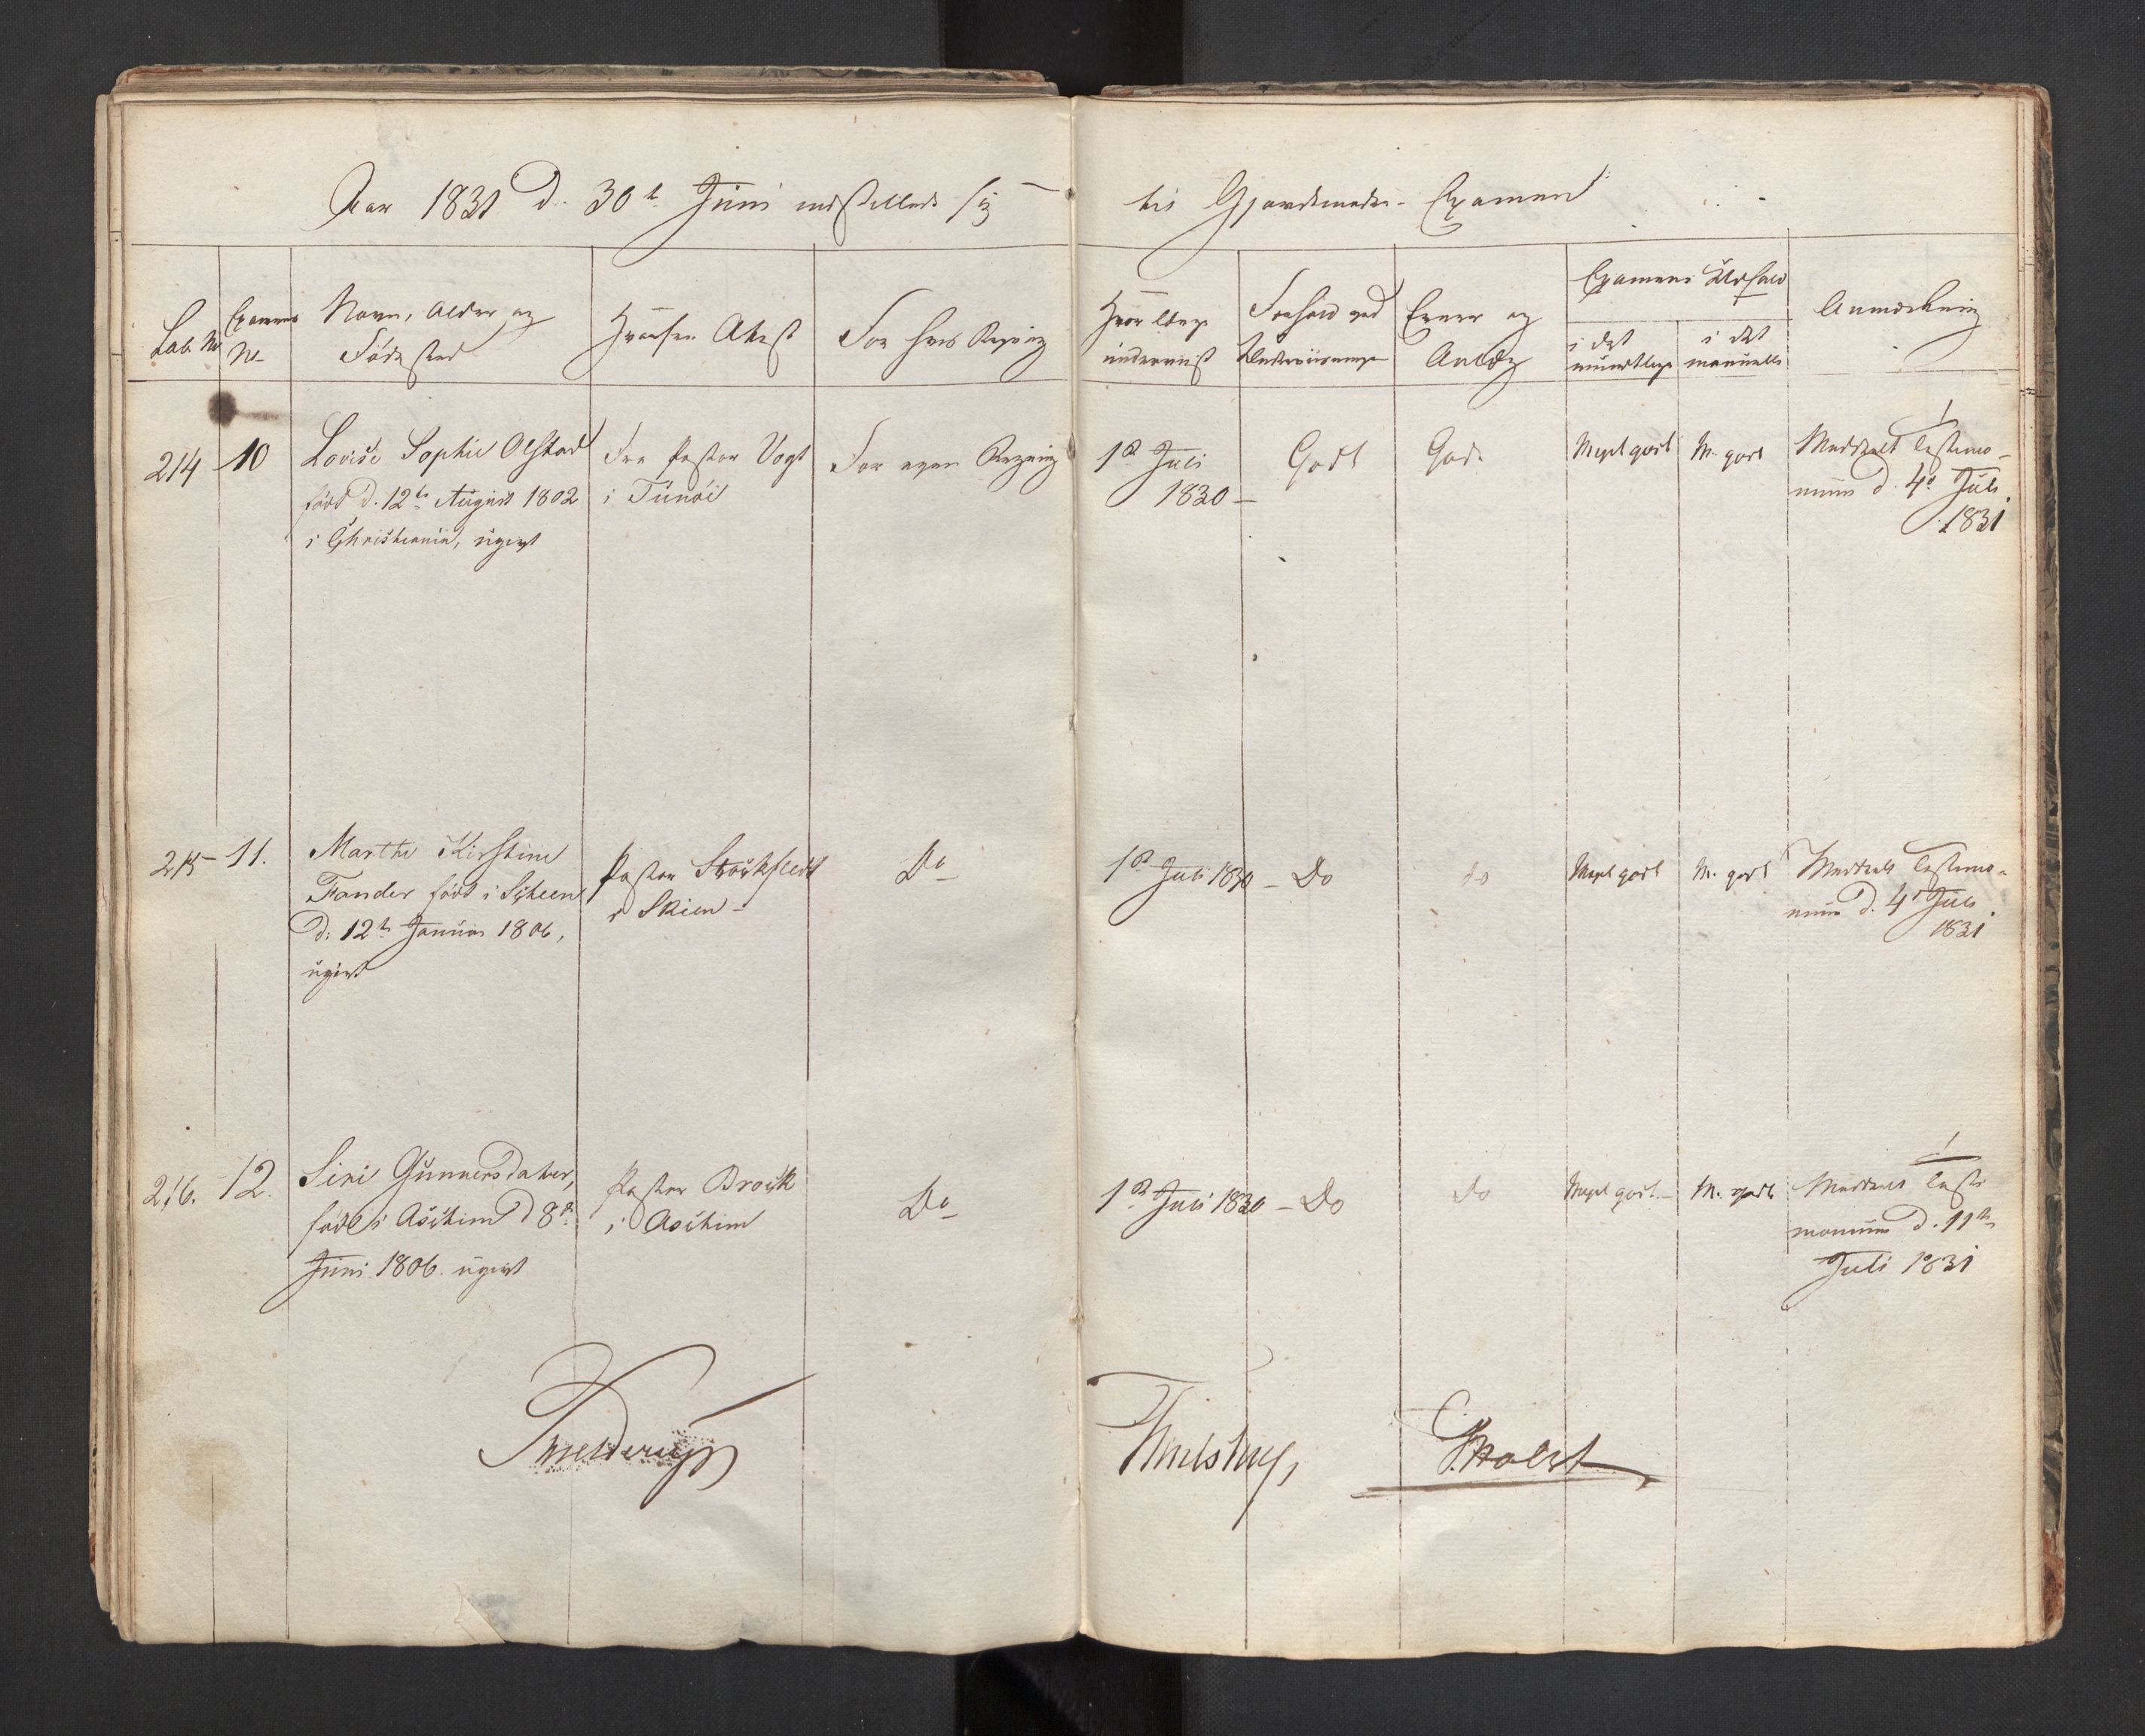 Aar 1831 d. 30te Juni indstillede sig til Gjordemoder-Examen
Lab. No
Examens No
Navn, Alder og
Fødested
Hvorfra Attest
For hvis Regning
Hvor længe
underviist
Forhold ved
Underviisningen
Evner og
Anlæg
Examens Udfald
i det
mundtlige
i det
manuelle
Anmærkning
214
10
Lovise Sophie Olstad
født d. 12te August 1802
i Christiania, ugivt
Fra Pastor Vogt
i
For egen Regning
1ste Juli
1830 –
Godt
God.
Meget godt
M. godt
Meddeelt Testimo-
nium d. 4de Juli
1831
215 –
11.
Marthe Kirstine
Fander født i Scheen
d: 12te Januar 1806,
ugivt
Pastor Stockfledt
i Skien –
Do
1ste Juli 1830 –
Do
do
Meget godt
M. godt
Meddeelt Testimo-
nium d. 4de Juli
1831
216.
12.
Siri Gunnersdatter,
født i Aschim d 8de
Juni 1806. ugivt
Pastor Brock
i Aschim
Do
1ste Juli 1830 –
Do
do
Meget godt –
M. godt
Meddeelt Testi
monium d. 11te
Juli 1831
Thulstrup,
Holst